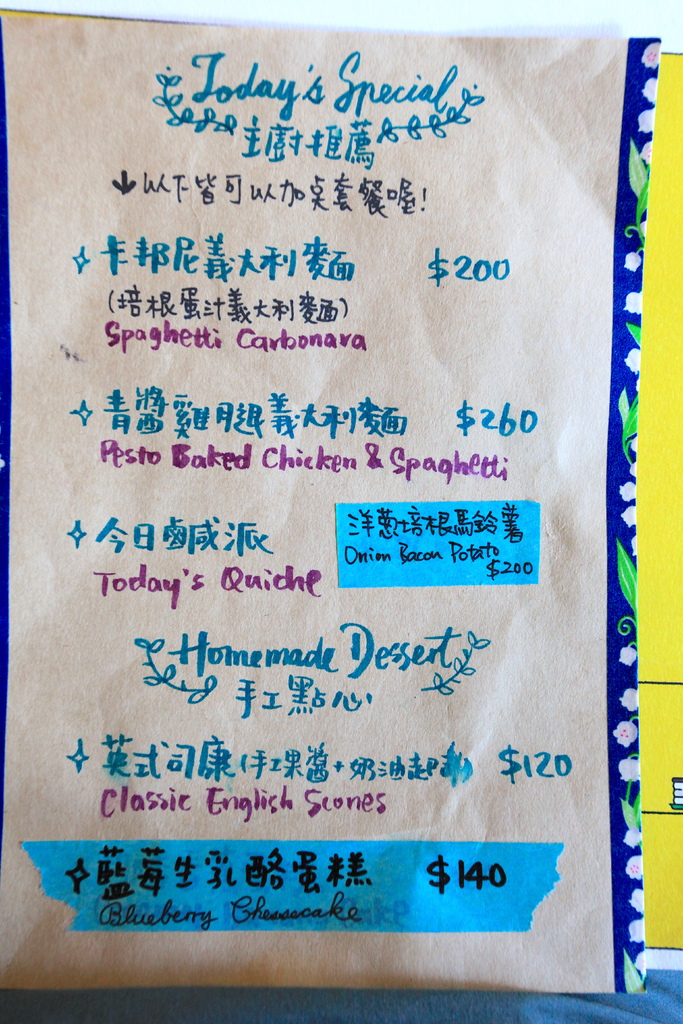 Today's Special
主廚推薦
↓以下皆可以加桌套餐喔!
卡邦尼義大利麵 $200
(培根蛋汁義大利麵)
Spaghetti Carbonara
青醬雞腿義大利麵 $260
Pesto Baked Chicken & Spaghetti
今日鹹派
Today's Quiche
洋蔥培根馬鈴薯
Onion Bacon Potato
$200
Homemade Dessert
手工點心
英式司康(手工果醬+奶油起 $120
Classic English Scones
藍莓生乳酪蛋糕 $140
Blueberry Cheesecake